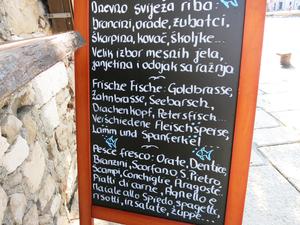 Dnevno svježa riba:
branzini, orade, zubatci,
škarpina, kovač, školjke...
Velik izbor mesnih jela,
janjetina i odojak sa ražnja
Frische Fische: Goldbrasse,
Zahnbrasse, Seebarsch,
Drachenkopf, Petersfisch...
Verschiedene Fleischsperse,
Lamm und Spanferkel
Pesce fresco: Orate, Dentice,
Branzini, Scorfano S. Pietro,
Scampi, Conchiglie, Aragoste.
Piatti di carne, Agnello e
Maiale allo Spiedo, spagetti,
risotti, insalate, zuppe...